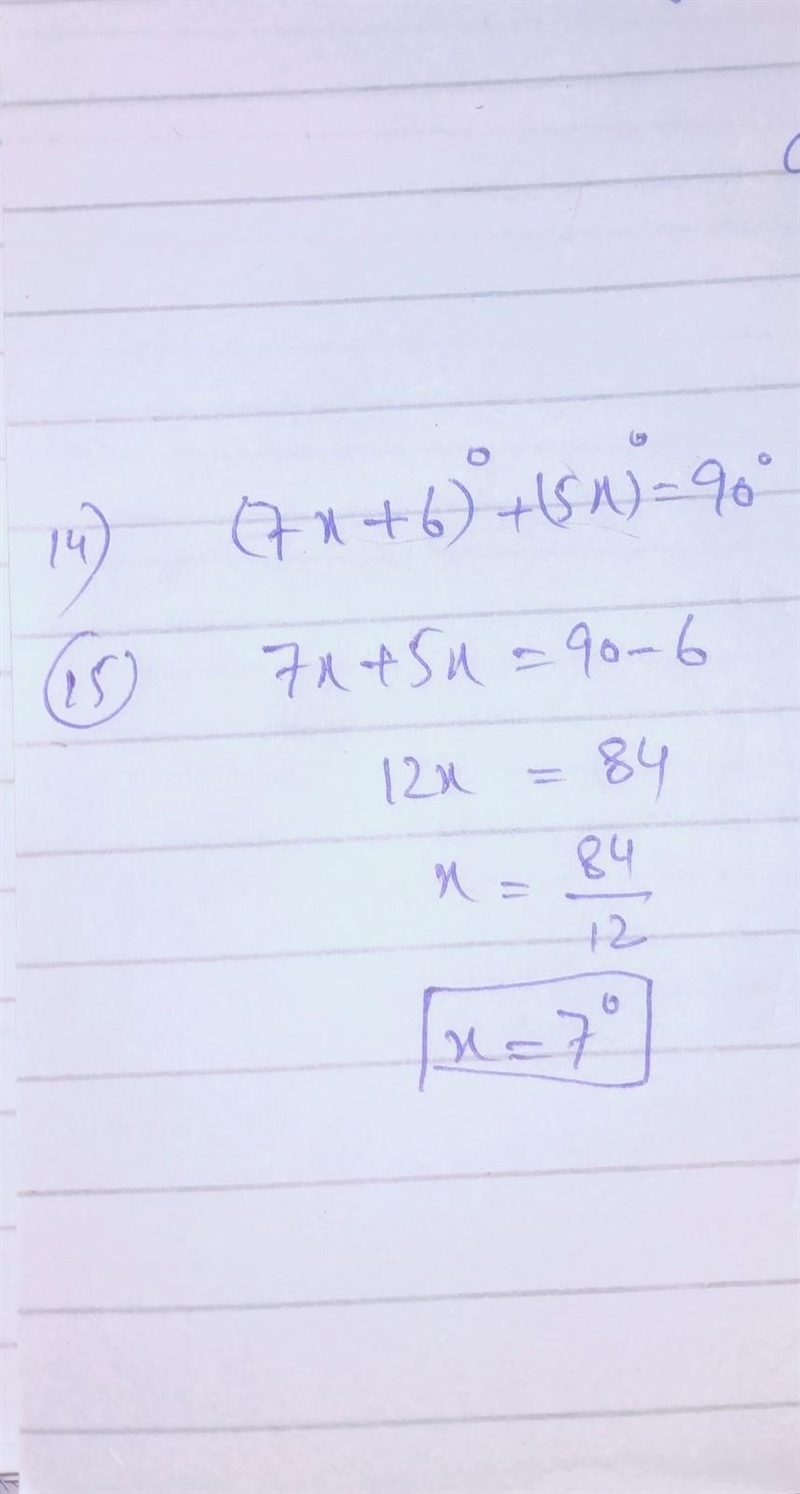 14) (7x+6)° + (5x)° = 90°
15) 7x+5x = 90-6
12x = 84
x = 84/12
x = 7°